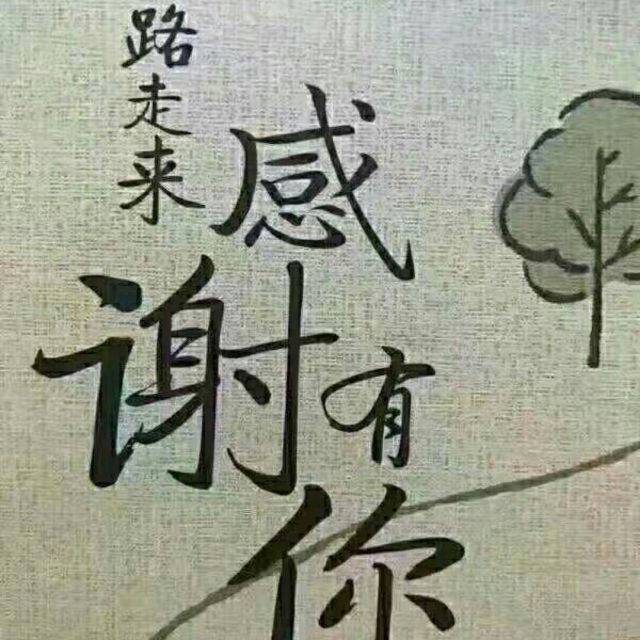 路走来
感谢
有你